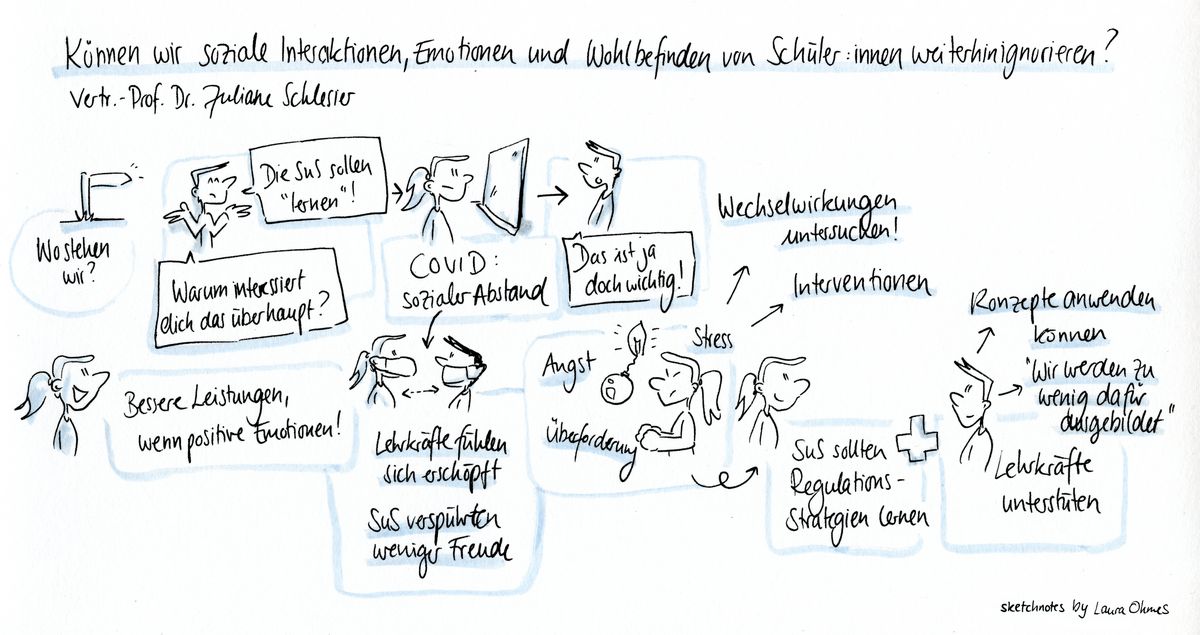 Können wir soziale Interaktionen, Emotionen und Wohlbefinden von Schüler:innen weiterhin ignorieren?
Vertr.-Prof. Dr. Juliane Schlesier
Wo stehen
wir?
Die SuS sollen
"lernen"!
Warum interessiert
dich das überhaupt?
COVID:
sozialer Abstand
Das ist ja
doch wichtig!
Wechselwirkungen
untersuchen!
Interventionen
Bessere Leistungen,
wenn positive Emotionen!
Lehrkräfte fühlen
sich erschöpft
SuS verspührten
weniger Freude
Angst
Stress
Überforderung
SuS sollten
Regulations-
Strategien lernen
Konzepte anwenden
können
"Wir werden zu
wenig dafür
ausgebildet"
Lehrkräfte
unterstüten
sketchnotes by Laura Ohmes